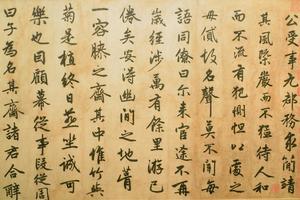 公受事九郡務簡請
其風嚴而不猛待人和
而不流有犯惻怛以處之
毋貳故名聲莫不聞每
語同僚曰尔来宦途不再
歲經涉萬有餘里游已
倦矣安得幽閒之地
一容膝之齋其中惟竹與
菊是植終日燕坐誠可
樂也因顧幕從事段從周
曰子為名其齋諸君合辭